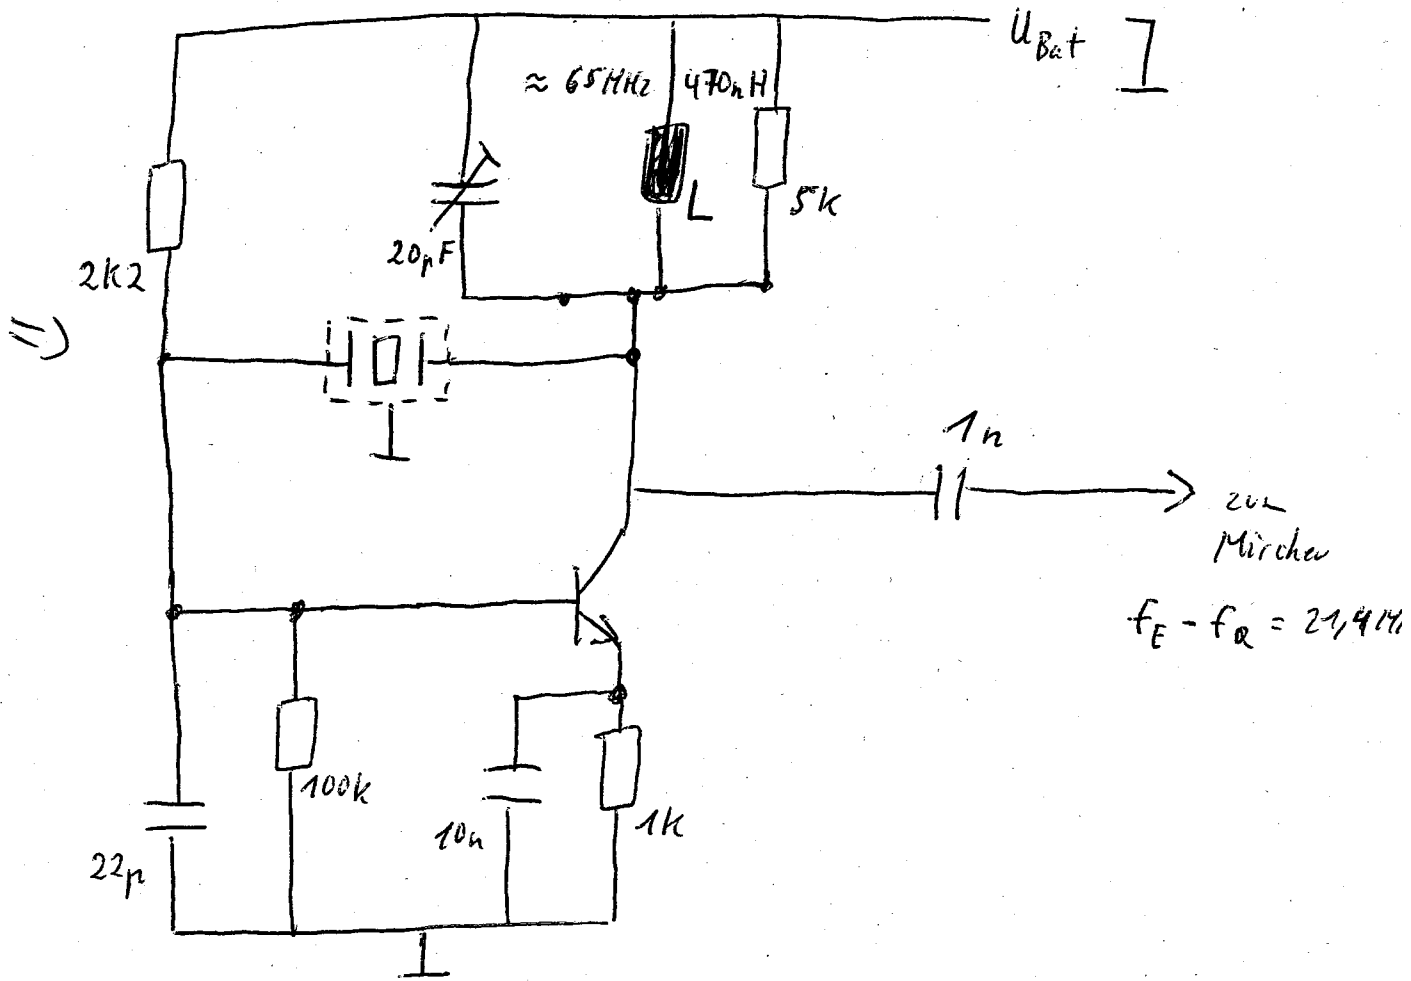 U Bat
≈ 65MHz
470nH
L
5k
20pF
2k2
1n
zum
Mischer
fE - fQ = 21,4 M
100k
10n
1k
22p